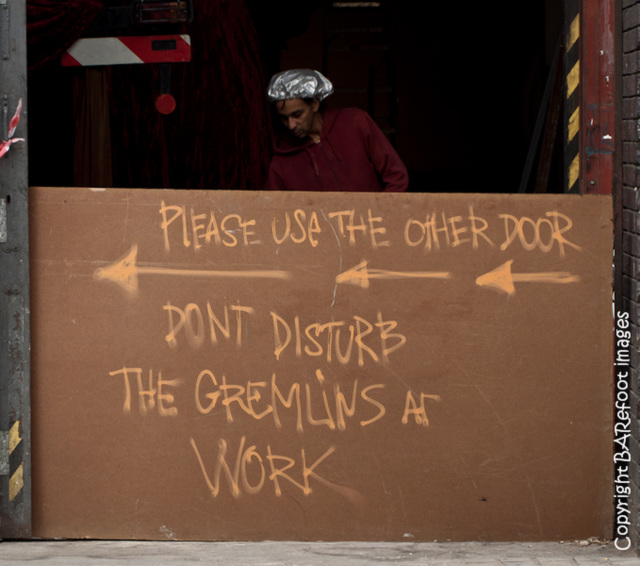 PLEASE USE THE OTHER DOOR
DONT DISTURB
THE GREMLiNS AT
WORK
Copyright BARefoot images